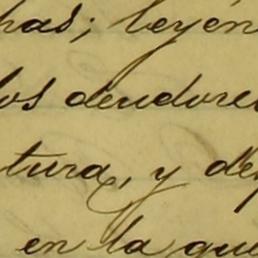 has; leyén
los deudore
tura, y de
en la que